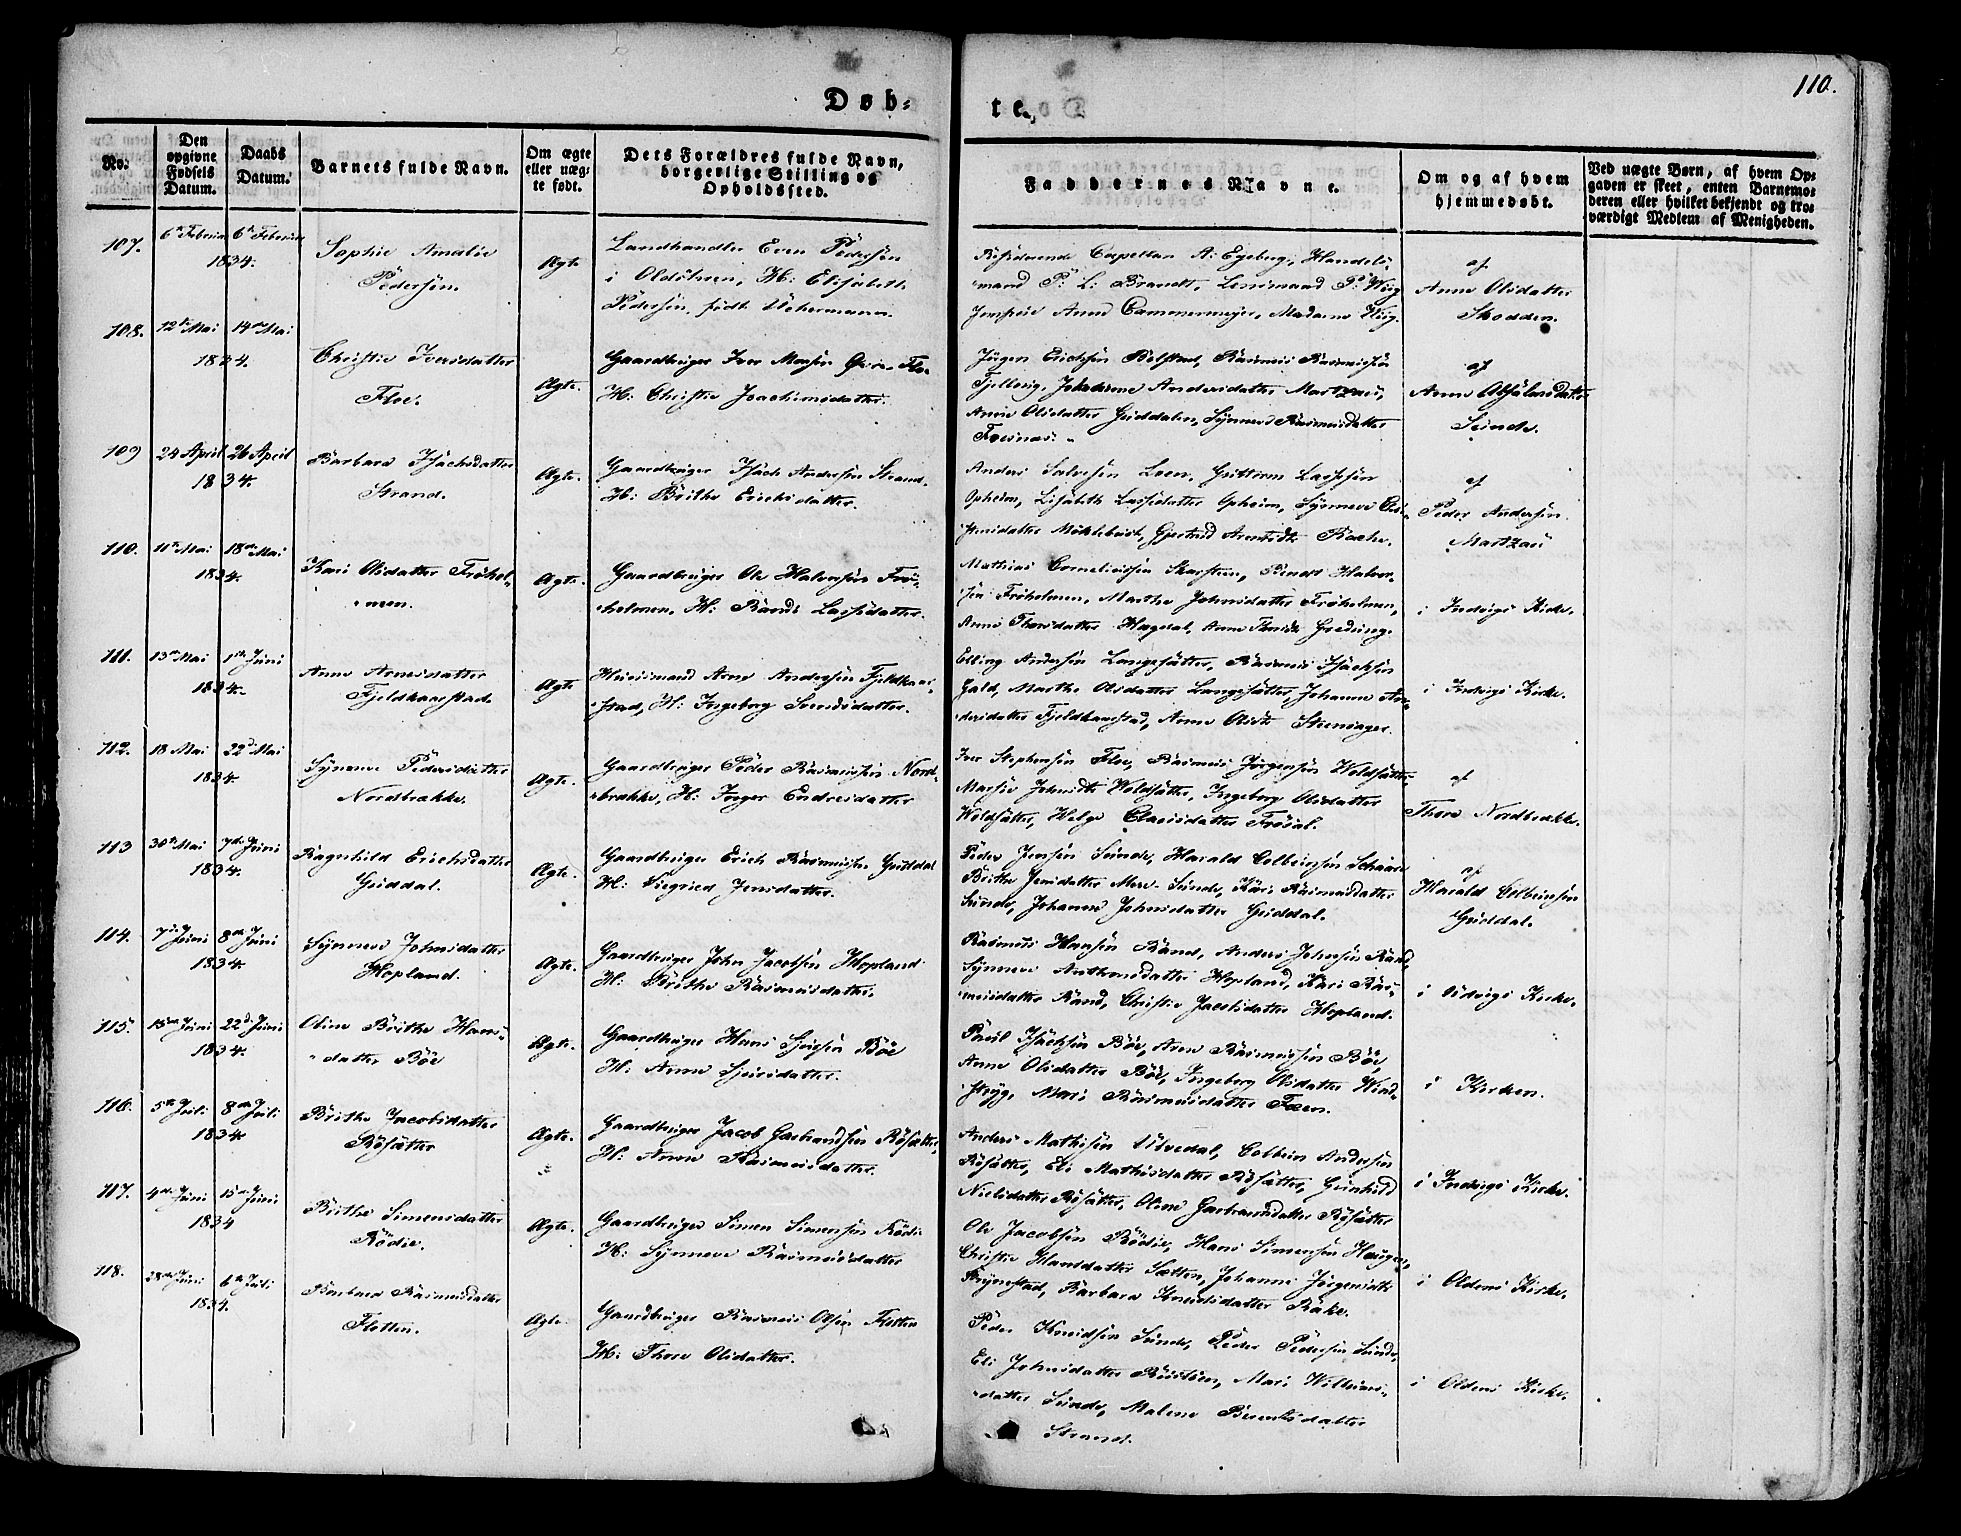 110.
Døb-
te,
No.
Den opgivne Fødsels Datum.
Daabs Datum.
Barnets fulde Navn.
Om ægte eller uægte født.
Dets Forældres fulde Navn, borgerlige Stilling og Opholdssted.
Faddernes Navne.
Om og af hvem hjemmedøbt.
Ved uægte Børn, af hvem Opgaven er skeet, enten Barnemoderen eller hvilket bekjendt og troværdigt Medlem af Menigheden.
107.
1834.
Sophie Amalie
Pedersen.
Ægte
Landhandler Even Pedersen
i Oldøren, H: Elisabeth
Pedersen, født Uchermann.
Residerende Capellan A: Egeberg, Handels-
mand P: L: Brandt, Lensmand P: Wiig
Jomfrue Anne Cammermeyer, Madame Wiig.
af
Anne Olsdatter
Skodden.
108.
12te Mai 14de Mai
1834.
Christie Iversdatter
Floe.
Ægte.
Gaardbruger Iver Monsen Floe
H: Christie Joachimsdatter.
Jørgen Erichsen Bolstad, Rasmus Rasmussen
Johanne Andersdatter Martzaus,
Anne Olsdatter Guddalen, Synneve Rasmusdatter
af
Anne
Sunde.
109
24 April 26 April
1834.
Barbara Isachsdatter
Strand.
Ægte.
Gaardbruger Isach Andersen Strand.
H: Brithe Erichsdatter.
Anders Salvesen Loen, Guttorm Lassesen
Opheim, Lisabeth Lassedatter Opheim, Synneve
Møklebust, Gjertrud Rache.
af
Peder Andersen
Martzau
110.
11te Mai 18de Mai
1834.
Kari Olsdatter Frøhol-
men.
Ægte.
Gaardbruger Ole Halvorsen Frø-
holmen, H: Randi Lassedatter.
Mathias Corneliussen Skarsteen, Bendt Halvor-
sen Frøholmen, Marthe Johnsdatter Frøholmen,
Anne Thorsdatter Hagedal, Anne
i Indvigs Kirke.
111.
13de Mai 1ste Juni
1834.
Anne Arnesdatter
Fjeldkaarstad
Ægte
Huusmand Arne Andersen Fjeldkaar-
stad, H: Ingeborg Svendsdatter.
Elling Andersen Langesætter, Rasmus Isachsen
Fald, Marthe Olsdatter Langesætter, Johanne An-
dersdatter Fjeldkaarstad, Anne Olsdt Steensager.
i Indvigs Kirke.
112.
18 Mai 22de Mai
1834.
Synneve Pedersdatter
Nordbrække.
Ægte.
Gaardbruger Peder Rasmussen Nord-
brække, H: Inger Endresdatter
Iver Stephensen Floe, Rasmus Jørgensen Woldsætter,
Johnsdt Woldsætter, Ingeborg Olsdatter
Woldsætter, Helge Claesdatter Frøsal.
af
Thore Nordbrække.
113
30te Mai 7de Juni
1834.
Ragnhild Erichsdatter
Guddal.
Ægte.
Gaardbruger Erich Rasmussen Guddal
H: Siegried Jensdatter.
Peder Jensen Sunde, Harald Colbeinsen Schaare
Brithe Jensdatter Mere-Sunde, Kari Rasmusdatter
Sunde, Johanne Johnsdatter Guddal.
af
Harald Colbeinsen
Guddal.
114.
7de Juni 8de Juni
1834.
Synneve Johnsdatter
Hopland.
Ægte.
Gaardbruger John Jacobsen Hopland
H: Brithe Rasmusdatter.
Rasmus Hansen Rand, Anders Johnsen Rand,
Synneve Anthonsdatter Hopland, Kari Ras-
musdatter Rand, Christie Jacobsdatter Hopland.
i Udvigs Kirke.
115.
15de Juni 22de Juni
1834.
Oline Brithe Hans-
datter Bøe
Ægte.
Gaardbruger Hans Sjursen Bøe
H: Anne Sjursdatter.
Paul Isachsen Bøe, Arne Rasmussen Bøe,
Anne Olsdatter Bøe, Ingeborg Olsdatter Wind-
stryg, Mari Rasmusdatter Faen.
i Kirken.
116.
5te Juli 8de Juli
1834.
Brithe Jacobsdatter
Røsætter
Ægte.
Gaardbruger Jacob Gaebrandsen Røsætter,
H: Anne Rasmusdatter.
Anders Mathisen Ulvedal, Colbein Andersen
Røsætter, Eli Mathisdatter Røsætter, Gunhild
Nielsdatter Røsætter, Oline Gaebrandsdatter Røsætter
i Indvigs Kirke.
117.
4de Juni 15de Juni
1834
Brithe Simensdatter
Rødie.
Ægte.
Gaardbruger Simen Simensen Rødie
H: Synneve Rasmusdatter
Ole Jacobsen Rødie, Hans Simensen Haugen,
Christie Hansdatter Sætten, Johanne Jørgensdt
Frynestad, Barbara Knudsdatter Rake.
i Oldens Kirke.
118.
28de Juni 6te Juli
1834.
Barbara Rasmusdatter
Fletten.
Ægte.
Gaardbruger Rasmus Olsen Fletten
H: Thore Olsdatter.
Peder Knudsen Sunde, Peder Pedersen Sunde,
Eli Johnsdatter Rustøen, Mari Willums-
datter Sunde, Malene Berentsdatter
Strand.
i Oldens Kirke.